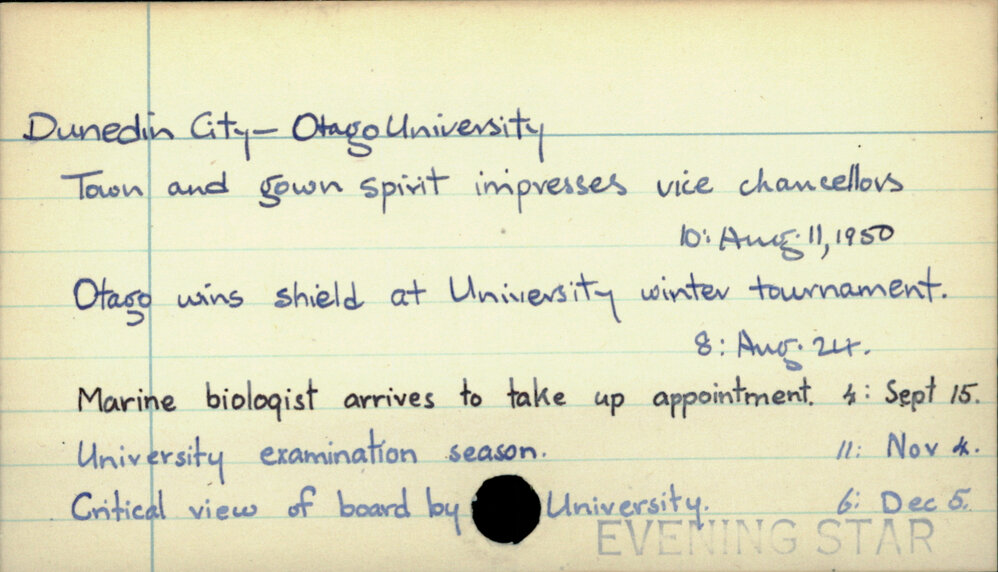 Dunedin City - Otago University
Town and gown spirit impresses vice chancellors
10: Aug. 11, 1950
Otago wins shield at University winter tournament.
8: Aug. 24.
Marine biologist arrives to take up appointment. 4: Sept 15.
University examination season. 11: Nov 4.
Critical view of board by University. 6: Dec 5.
EVENING STAR